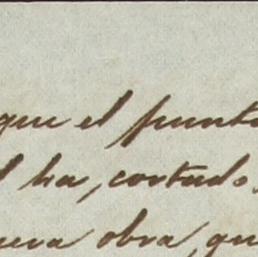 que el punto
ha, cortado,
nueva obra, qu